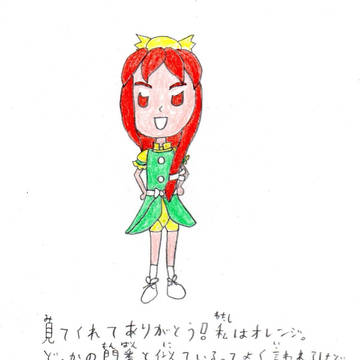 見てくれてありがとう!! 私はオレンジ。
どっかの門番と似ているってよく言われるけど